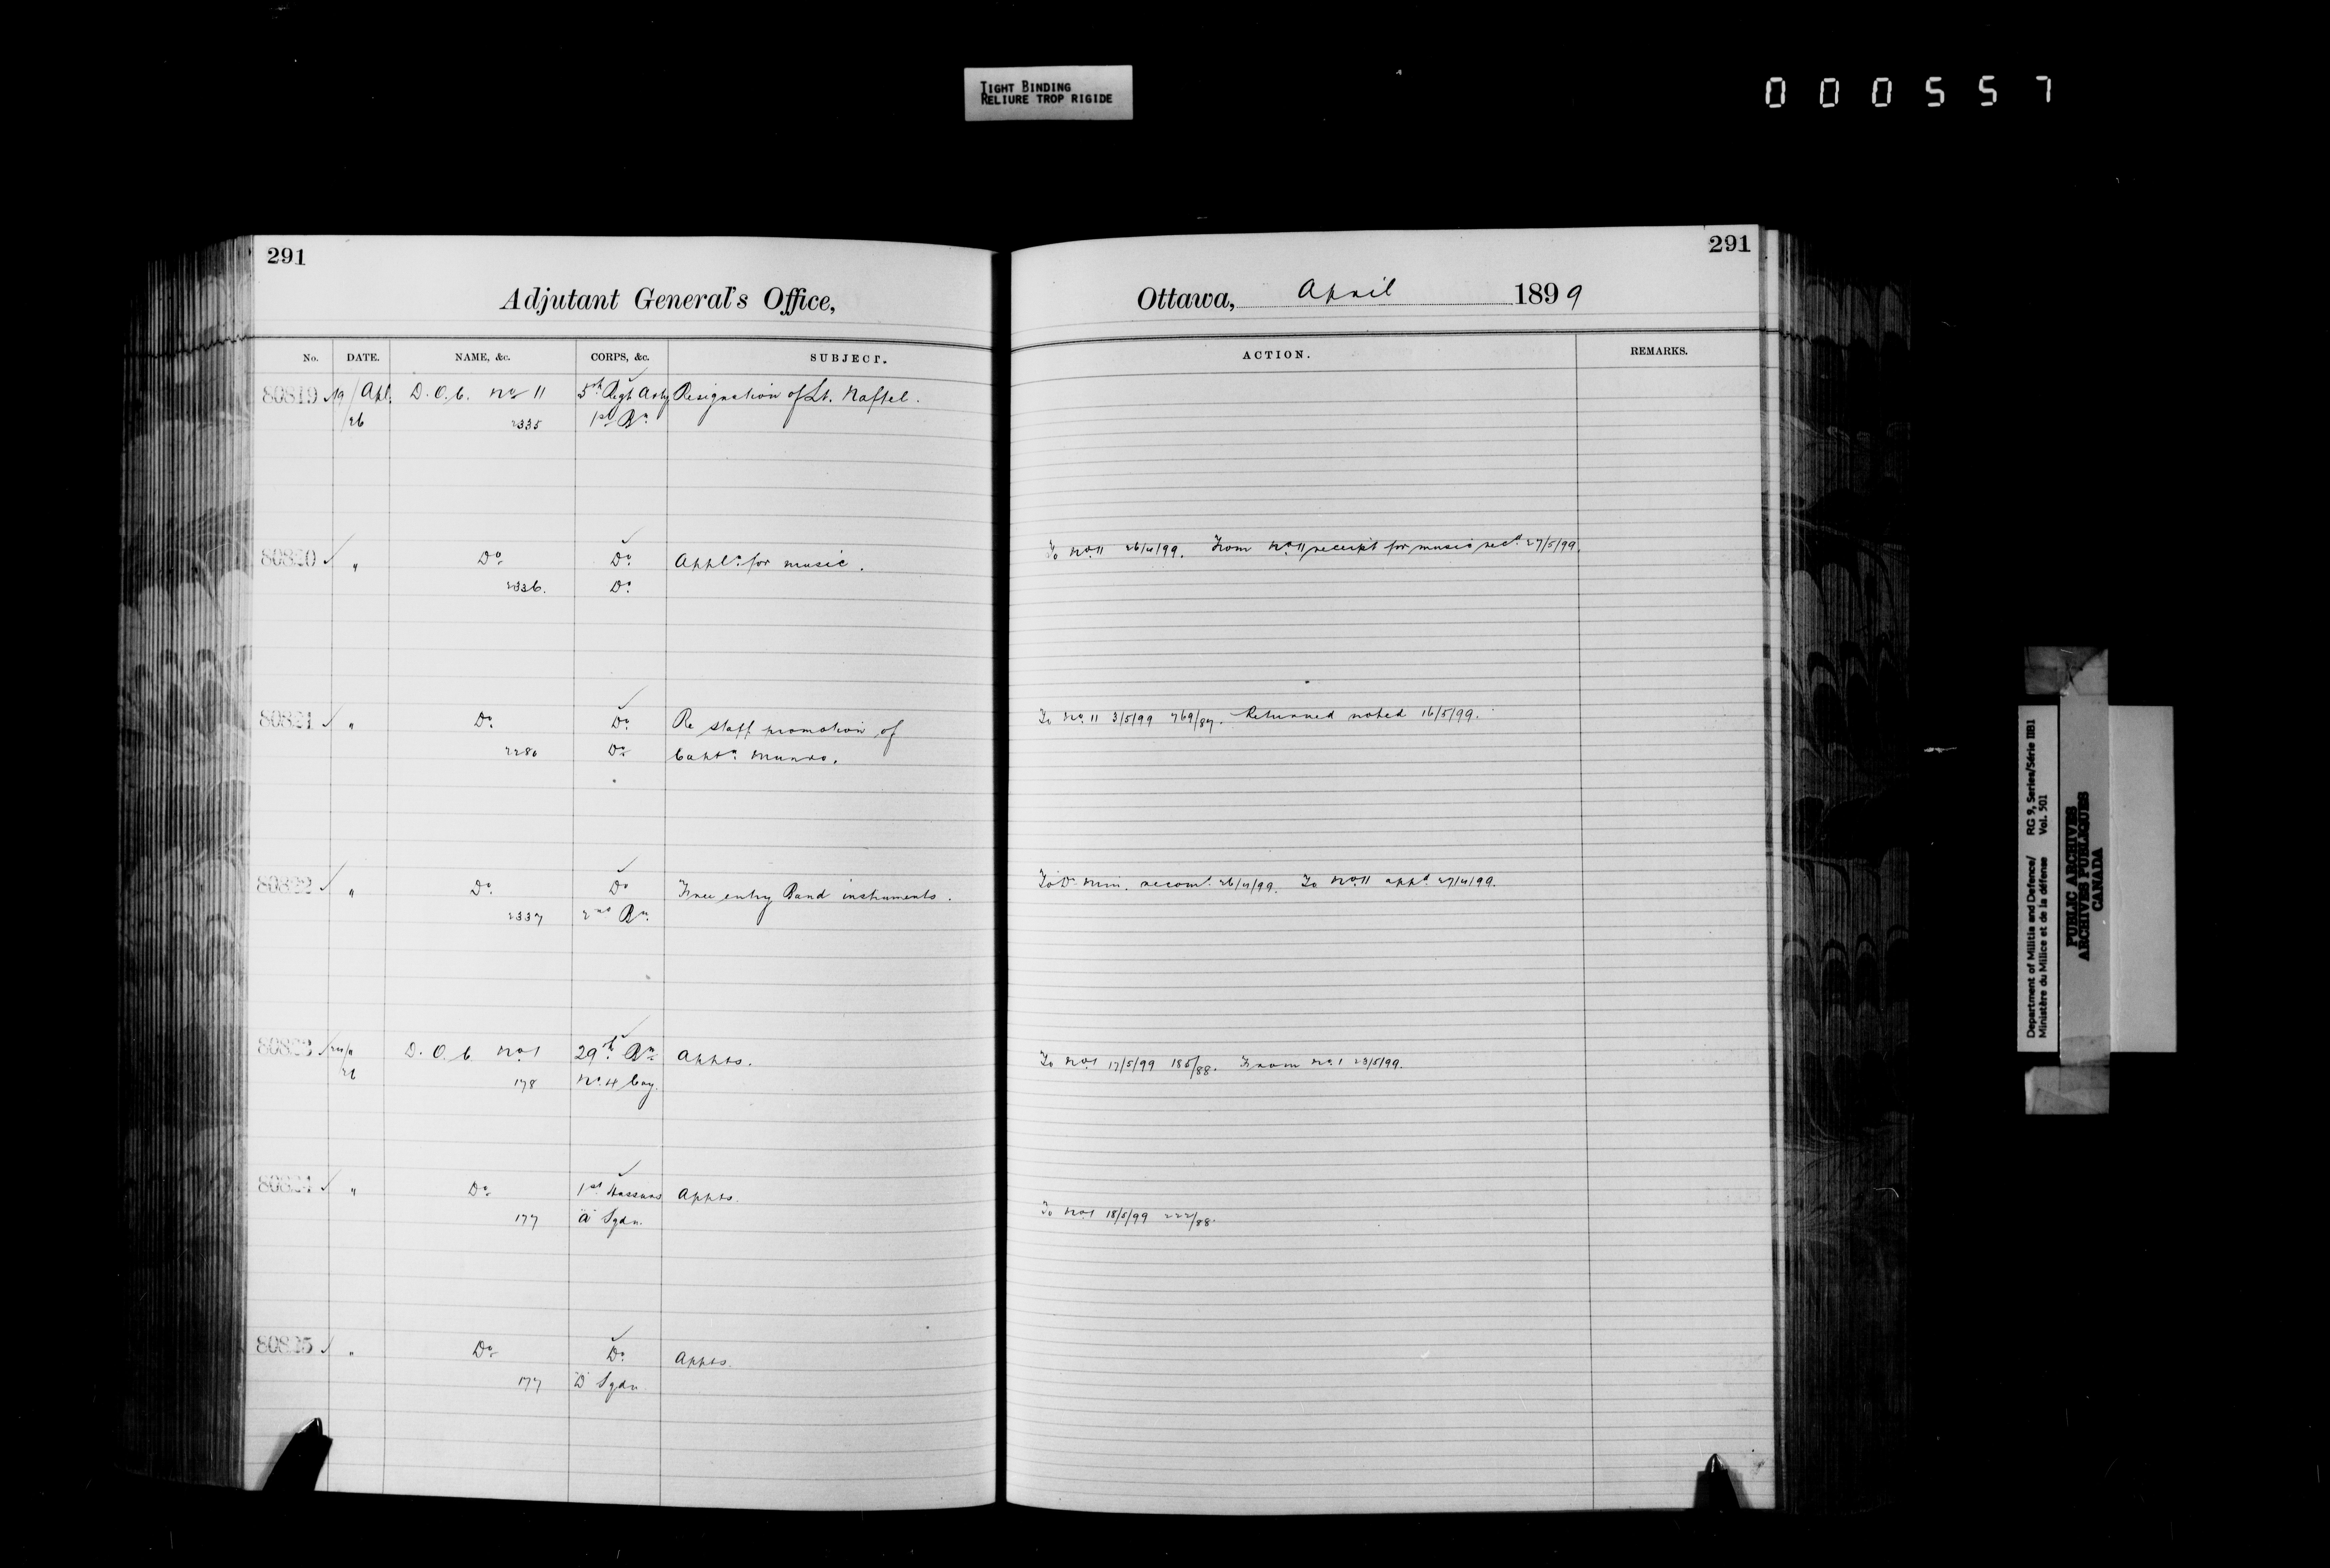 TIGHT BINDING
RELIURE TROP RIGIDE
000557
291
291
Adjutant General's Office,
Ottawa, April 1899
No. DATE. NAME, &c. CORPS, &c. SUBJECT.
ACTION. REMARKS.
80819 19/Apl. D.O.C. No 11 5th Regt Arty Resignation of Lt. Naftel.
26 2335 1st Bn
80820 " Do Do Appln for music.
To No 11 26/4/99. From No 11 receipt for music recd 27/5/99.
2336. Do
80821 " Do Do Re staff promotion of
To No 11 3/5/99 769/87. Returned noted 16/5/99.
2280 Do Captn Munro.
80822 " Do Do Free entry Band instruments.
To D Min. recomd 26/4/99. To No 11 appd 27/4/99.
2337 2nd Bn
80823 24/4 D.O.C. No 1 29th Bn Appts.
26 178 No 4 Coy.
To No 1 17/5/99 185/88. From No 1 23/5/99.
80824 " Do 1st Hussars Appts.
177 "A" Sqdn.
To No 1 18/5/99 222/88.
80825 " Do Do Appts.
177 "D" Sqdn.
Department of Militia and Defence/ RG 9, Series/Série IIB1
Ministère du Milice et de la défense Vol. 501
PUBLIC ARCHIVES
ARCHIVES PUBLIQUES
CANADA